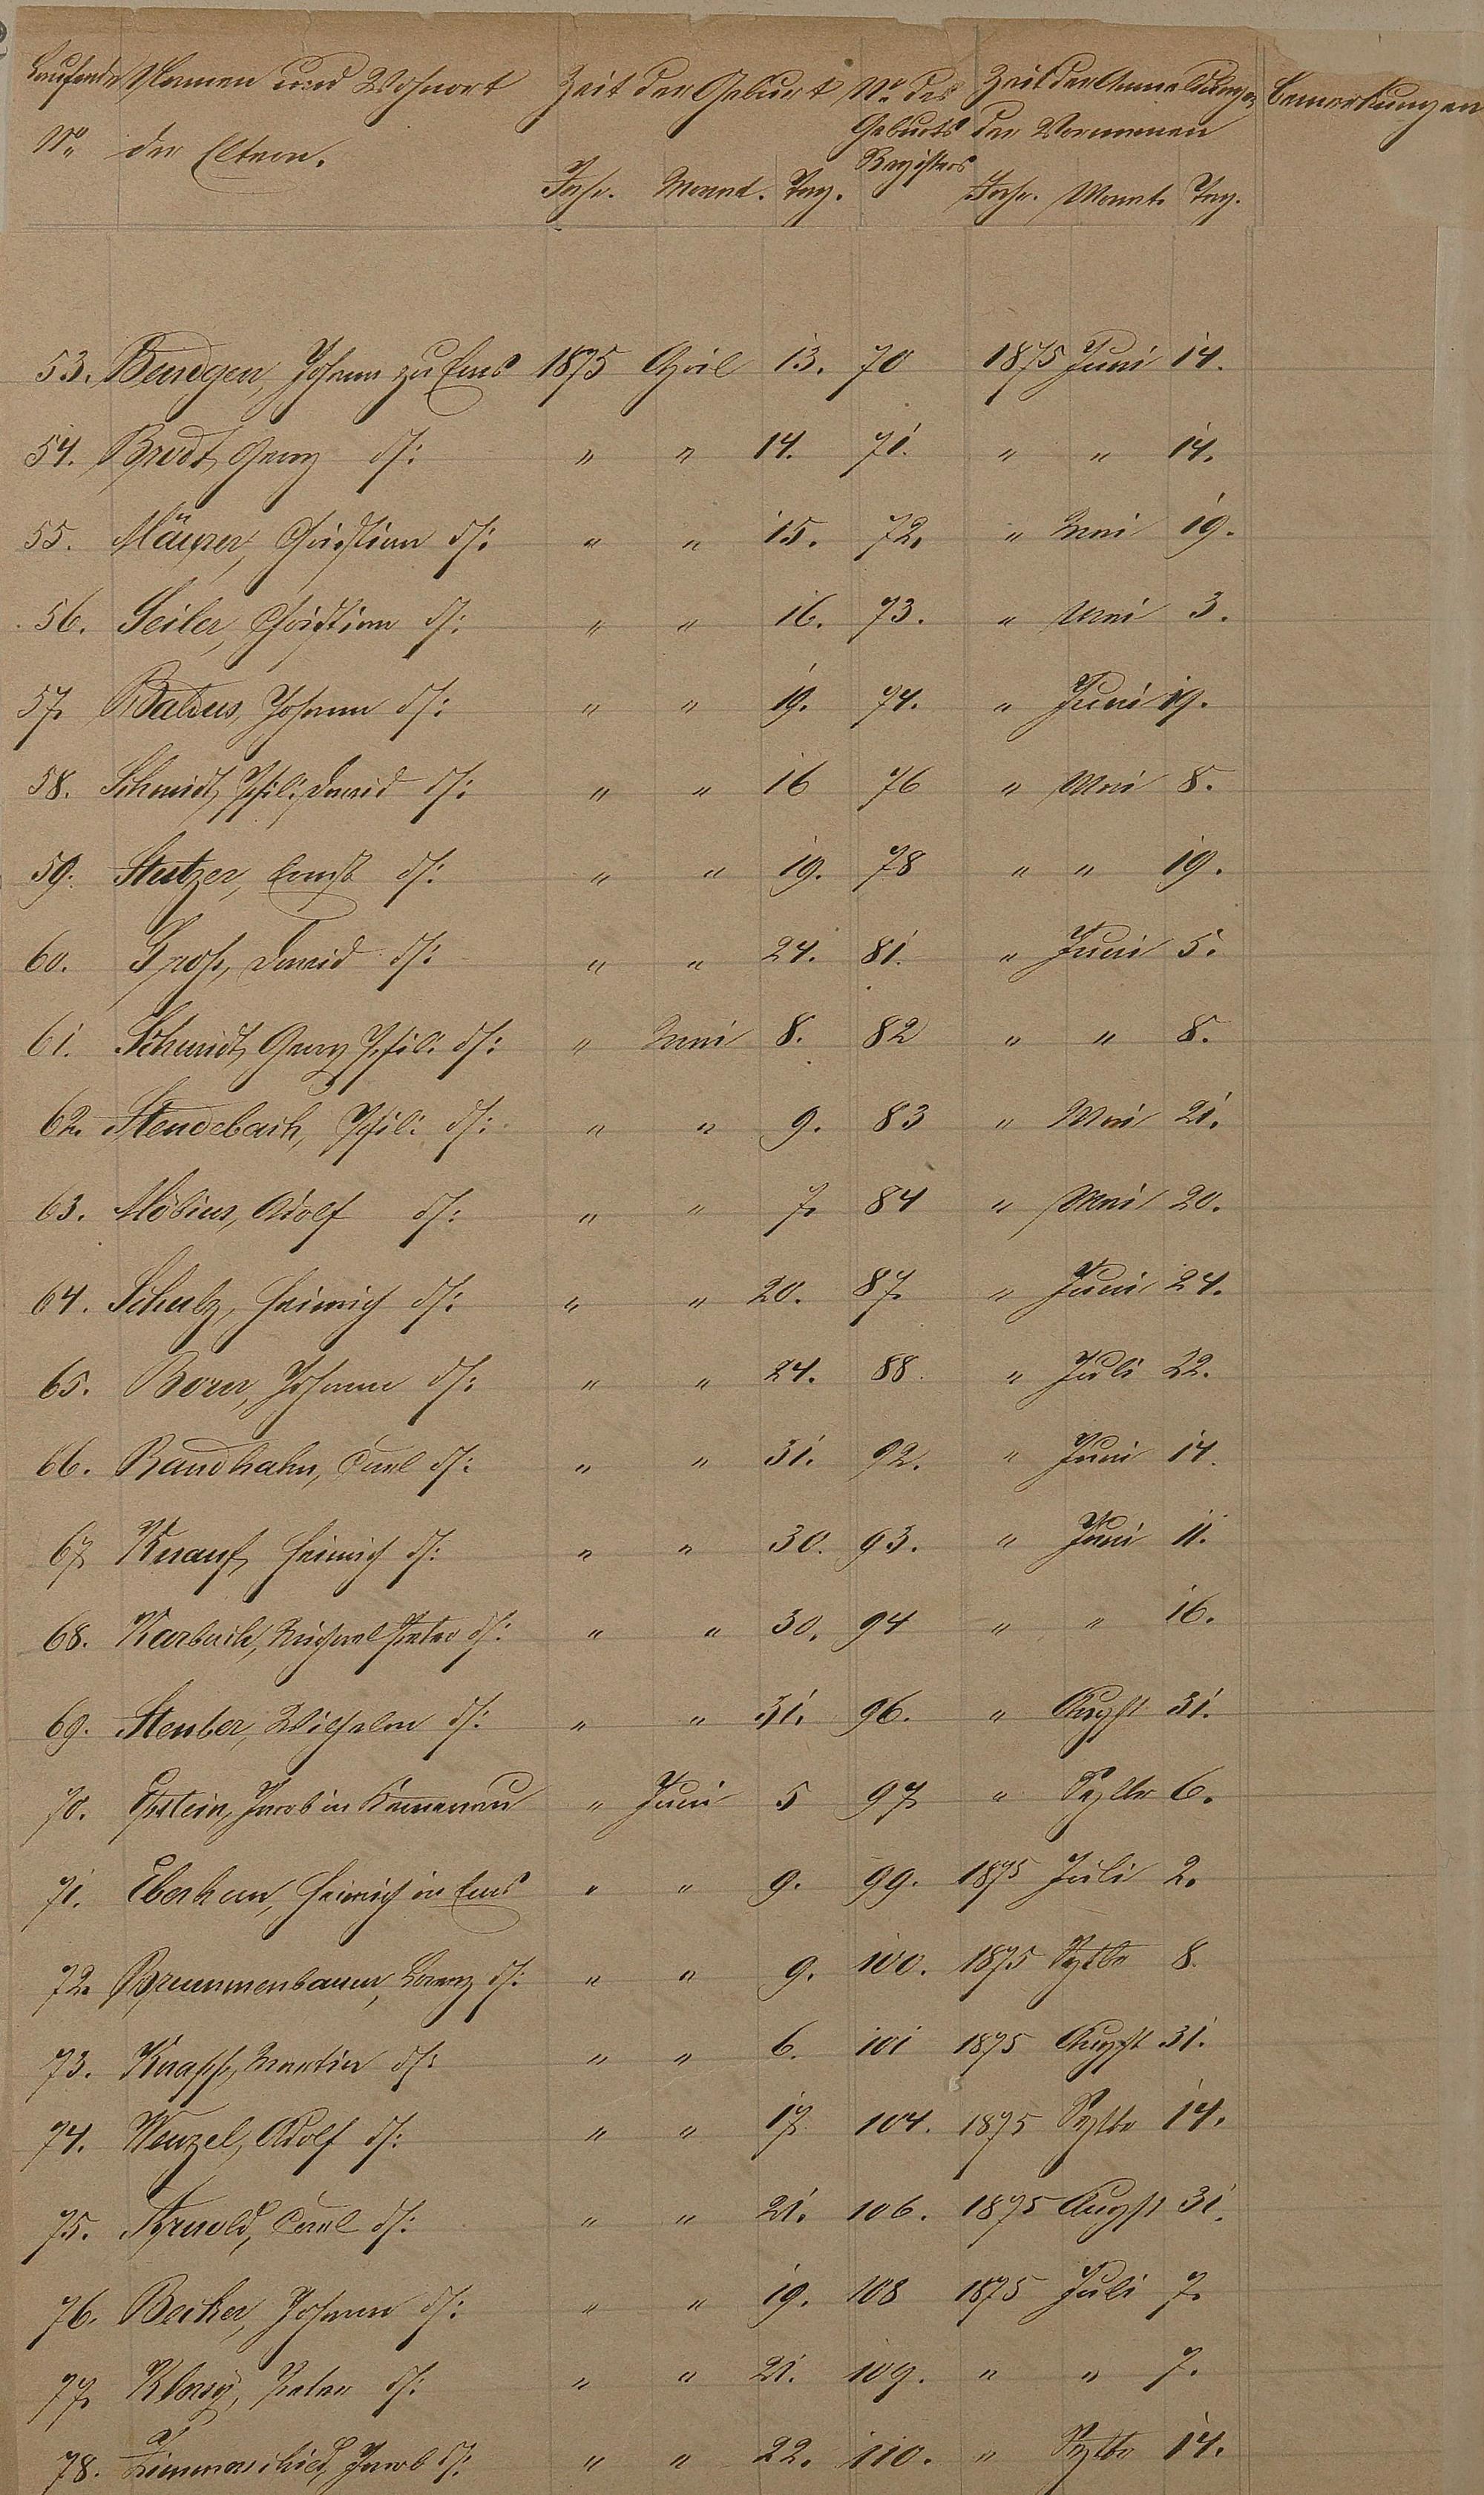 Laufende Namen und Wohnort Zeit der Geburt No. des Zeit der Anmeldungen Bemerkungen
No. der Eltern. Geburts der Vornamen
Registers
Jahr. Monat. Tag. Jahr. Monat. Tag.
53. Bendgen, Johann zu Ems 1875 April 13. 70 1875 Juni 14.
54. Brodt, Georg do: " " 14. 71. " " 14.
55. Mäurer, Christian do: " " 15. 72. " Mai 19.
56. Seiler, Christian do: " " 16. 73. " Mai 3.
57. Baldus, Johann do: " " 19. 74. " Juni 19.
58. Schmidt, Phil. David do: " " 16 76 " Mai 8.
59. Stutzer, Ernst do: " " 19. 78 " " 19.
60. Groß, David do: " " 24. 81. " Juni 5.
61. Schmidt, Georg Phil. do: " Mai 8. 82 " " 8.
62. Stendebach, Phil: do: " " 9. 83 " Mai 21.
63. Möbius, Adolf do: " " 7. 84 " Mai 20.
64. Schulz, Heinrich do: " " 20. 87. " Juni 24.
65. Born, Johann do: " " 24. 88. " Juli 22.
66. Bandhahn, Carl do: " " 31. 92. " Juni 14.
67. Knauf, Heinrich do: " " 30. 93. " Juni 11.
68. Karbach, Michael Peter do: " " 30. 94 " " 16.
69. Steuber, Wilhelm do: " " 31. 96. " August 31.
70. Epstein, Jacob in Kemmenau " Juni 5 97. " Septbr 6.
71. Eberhan, Heinrich in Ems " " 9. 99. 1875 Juli 2.
72. Brummenbauer, Lorenz do: " " 9. 100. 1875 Septbr 8.
73. Knapp, Martin do: " " 6. 101 1875 August 31.
74. Wenzel, Adolf do: " " 17. 104. 1875 Septbr 14.
75. Arnold, Carl do: " " 21. 106. 1875 August 31.
76. Becker, Johann do: " " 19. 108 1875 Juli 7.
77. Peter do: " " 21. 109. " " 7.
78. Zimmerschied, Jacob do: " " 22. 110. " Septbr 14.